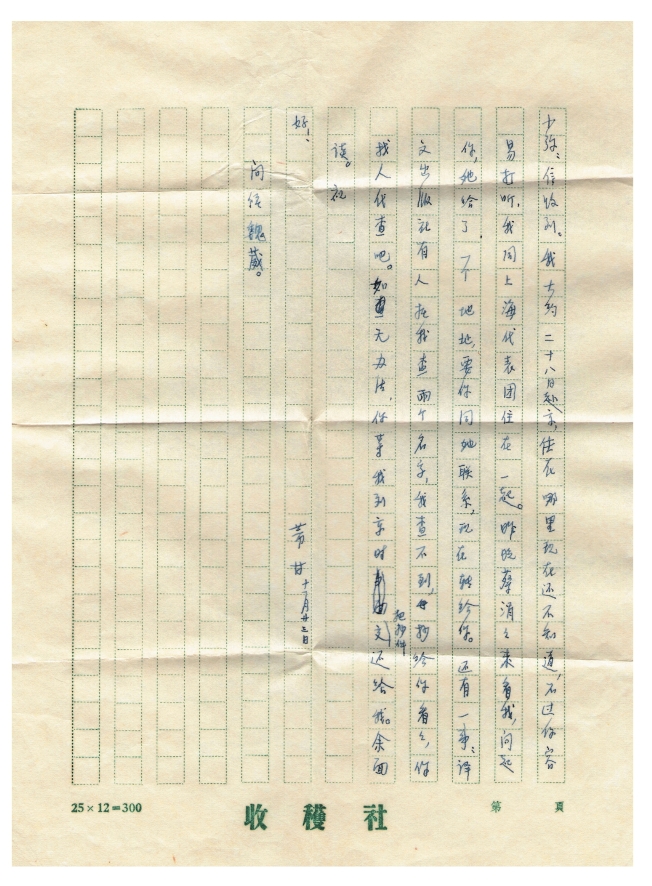 少弥：信收到。我大约二十八日赴京，住在哪里现在还不知道，不过你容
易打听，我同上海代表团住在一起。昨晚蔡涓涓来看我，问起
你，她给了一个地址，要你同她联系，现在转给你。还有一事：译
文出版社有人托我查两个名字，我查不到，抄给你看看，你
找人代查吧。如无办法，你等我到京时
把抄件
交还给我。余面
谈。祝
好！
问候魏葳。
芾甘 十一月廿三日
25×12=300
收穫社
第 頁